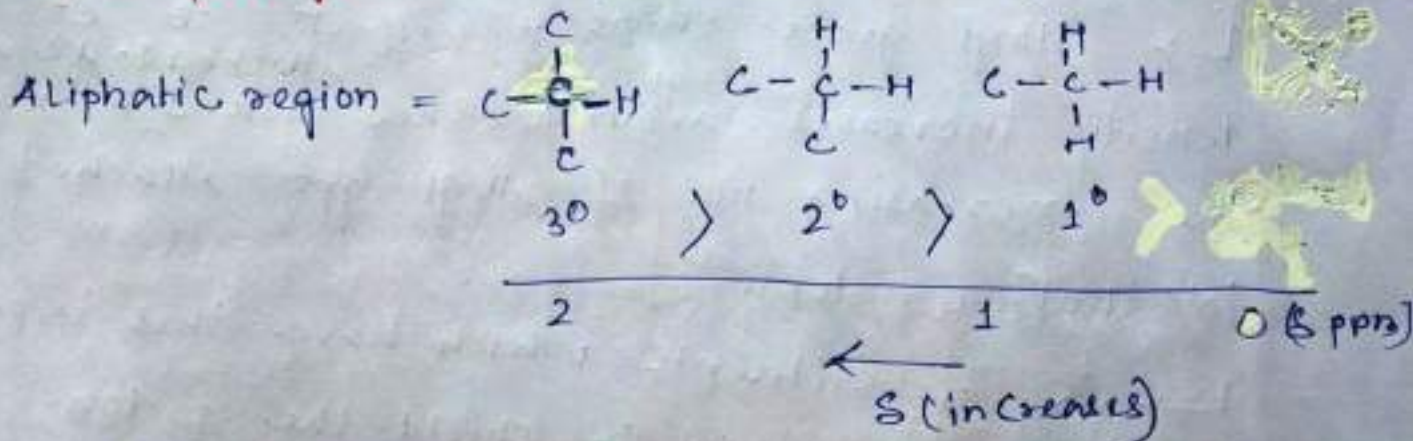 C H H
Aliphatic region = C-C-H C-C-H C-C-H
C C H
3° > 2° > 1° >
2 1 0 (δ ppm)
←
δ (increases)